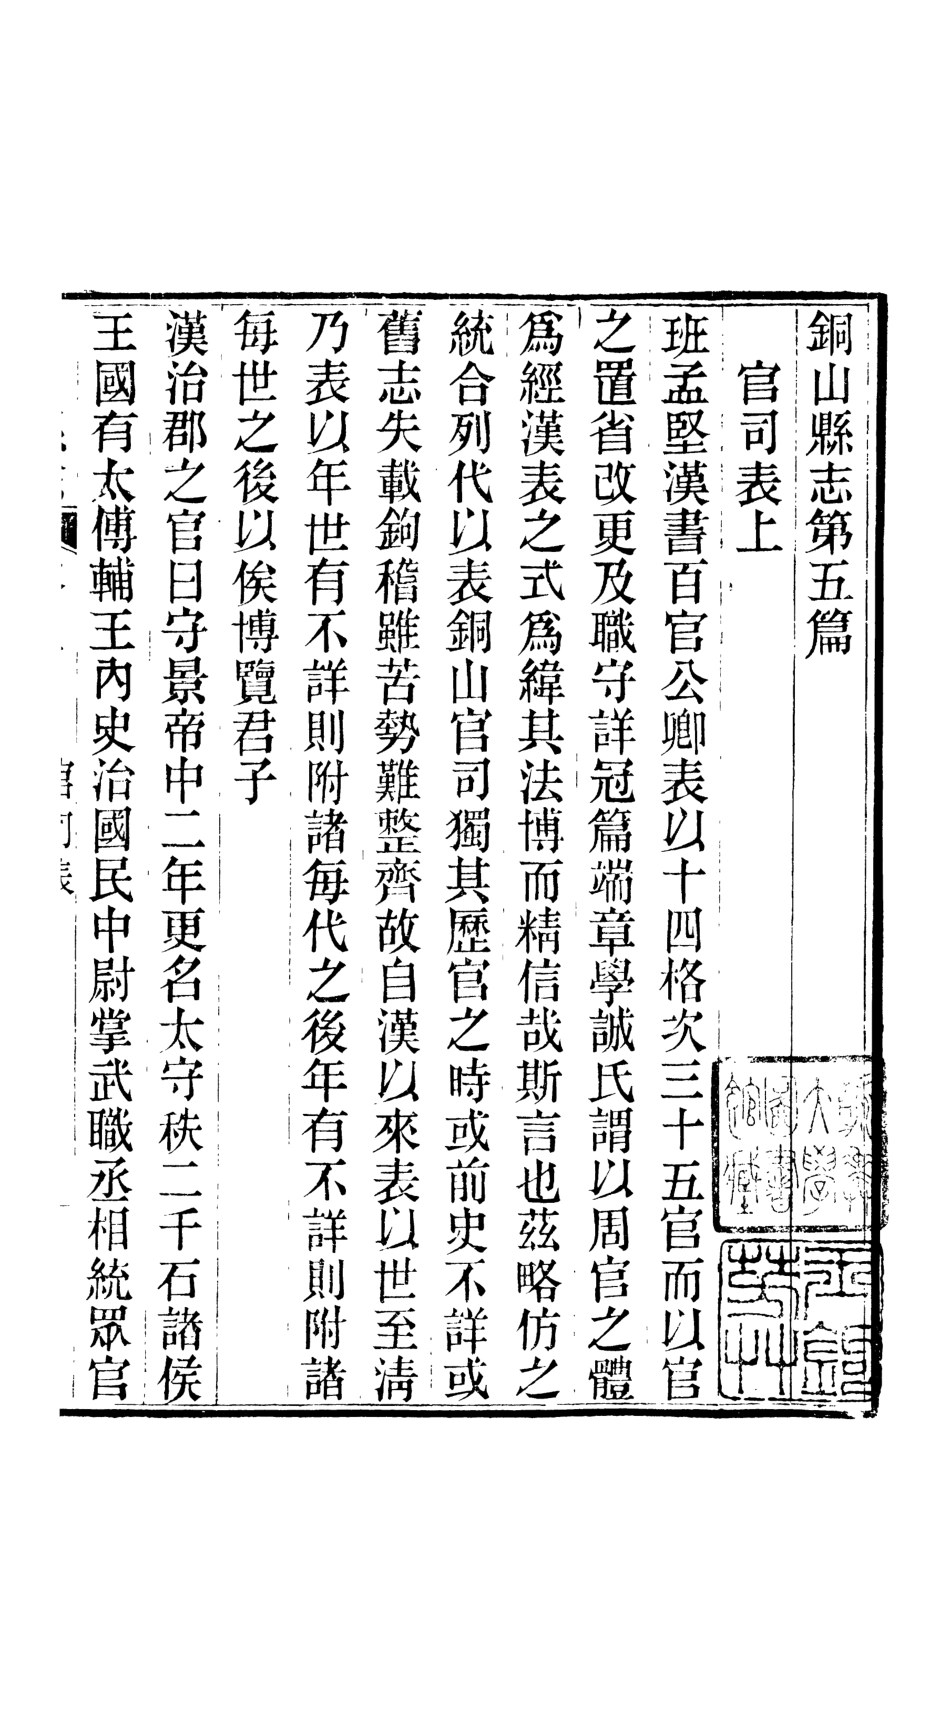 銅山縣志第五篇
官司表上
班孟堅漢書百官公卿表以十四格次三十五官而以官
之置省改更及職守詳冠篇端章學誠氏謂以周官之體
爲經漢表之式爲緯其法博而精信哉斯言也茲略仿之
統合列代以表銅山官司獨其歷官之時或前史不詳或
舊志失載鉤稽雖苦勢難整齊故自漢以來表以世至淸
乃表以年世有不詳則附諸每代之後年有不詳則附諸
每世之後以俟博覽君子
漢治郡之官曰守景帝中二年更名太守秩二千石諸侯
王國有太傅輔王內史治國民中尉掌武職丞相統眾官
官司表
大學圖書館